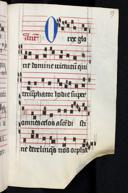 O rex glo
rie domine uirtutum qui
triumphator hodie super
omnes celos ascendi sti
ne derelinquas nos orpha